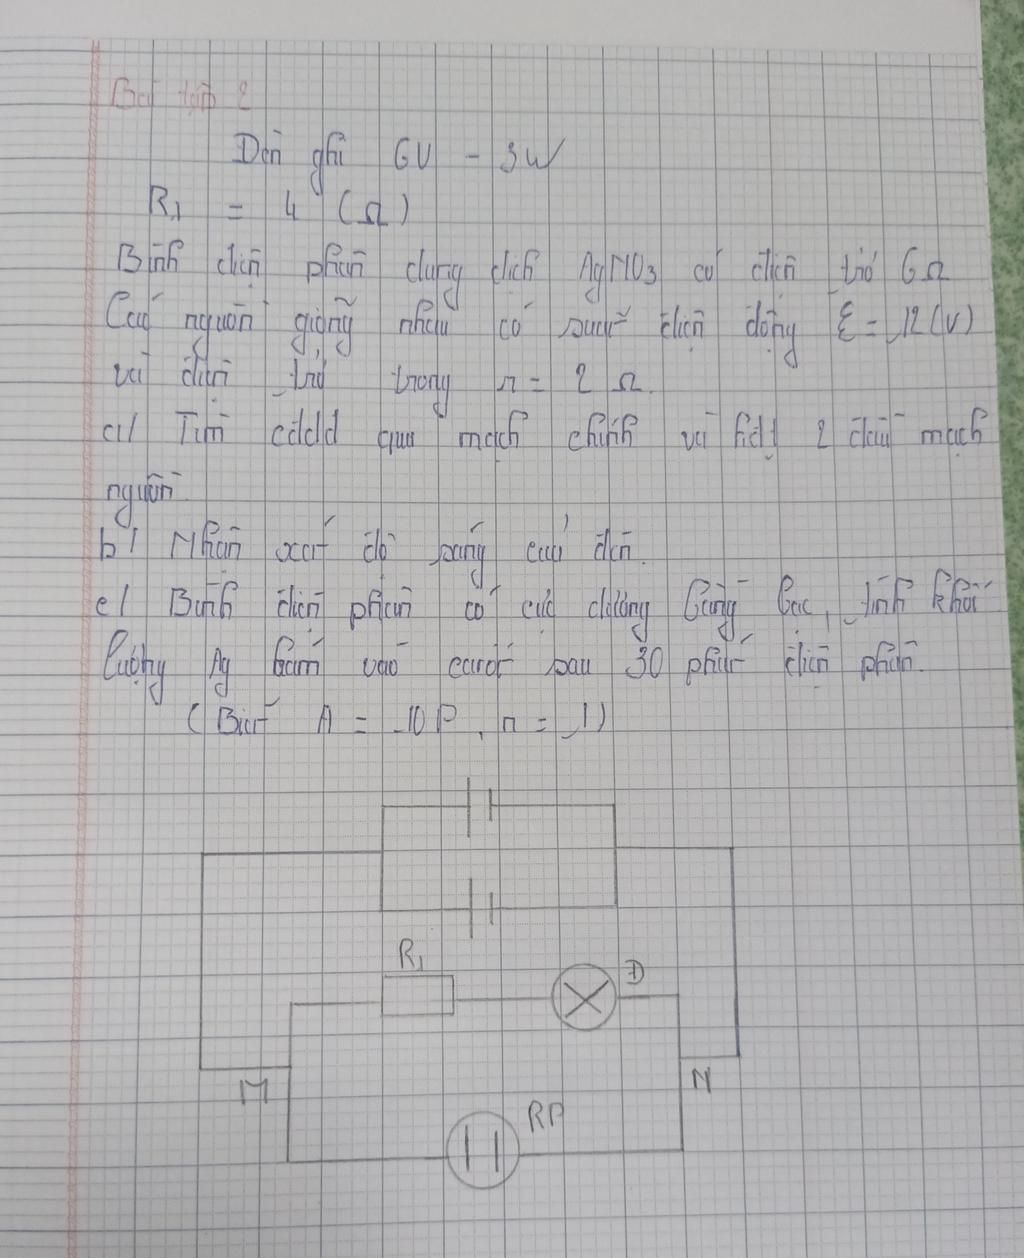 Bài tập 2
Đèn ghi 6V - 3W
R1 = 4 (Ω)
Bình điện phân dung dịch AgNO3 có điện trở 6Ω
Các nguồn giống nhau có suất điện động ξ = 12(V)
và điện trở trong r = 2 Ω.
a/ Tìm cđdđ qua mạch chính và hđt 2 đầu mạch
nguồn
b/ Nhận xét độ sáng của đèn.
c/ Bình điện phân có cực dương bằng bạc, tính khối
lượng Ag bám vào catốt sau 30 phút điện phân.
(Biết A = 108, n = 1)
R1
Đ
M
N
RP